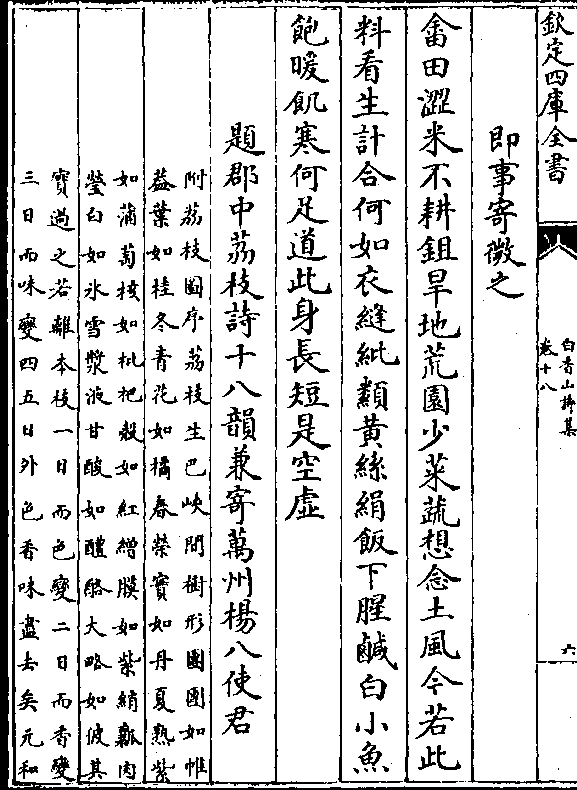 欽定四庫全書
白香山詩集
卷十八
六
即事寄微之
畬田澀米不耕鉏旱地荒園少菜蔬想念土風今若此
料看生計合何如衣縫紕纇黃絲絹飯下腥鹹白小魚
飽暖飢寒何足道此身長短是空虛
題郡中荔枝詩十八韻兼寄萬州楊八使君
附荔枝圖序荔枝生巴峽間樹形團團如帷
葢葉如桂冬青花如橘春榮實如丹夏熟紫
如蒲萄核如枇杷殻如紅繒膜如紫綃瓤肉
瑩白如氷雪漿液甘酸如醴酪大略如彼其
實過之若離本枝一日而色變二日而香變
三日而味變四五日外色香味盡去矣元和